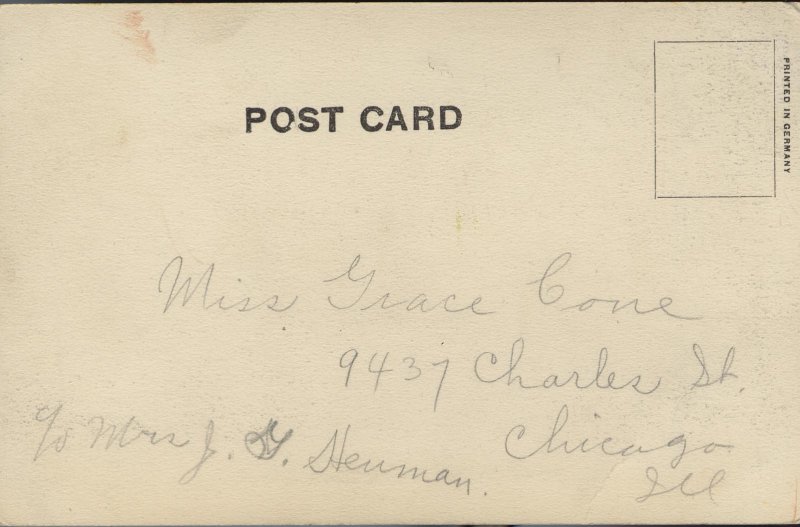 POST CARD
PRINTED IN GERMANY
Miss Grace Cone
9437 Charles St.
Chicago
Ill
c/o Mrs J. G. Henman.